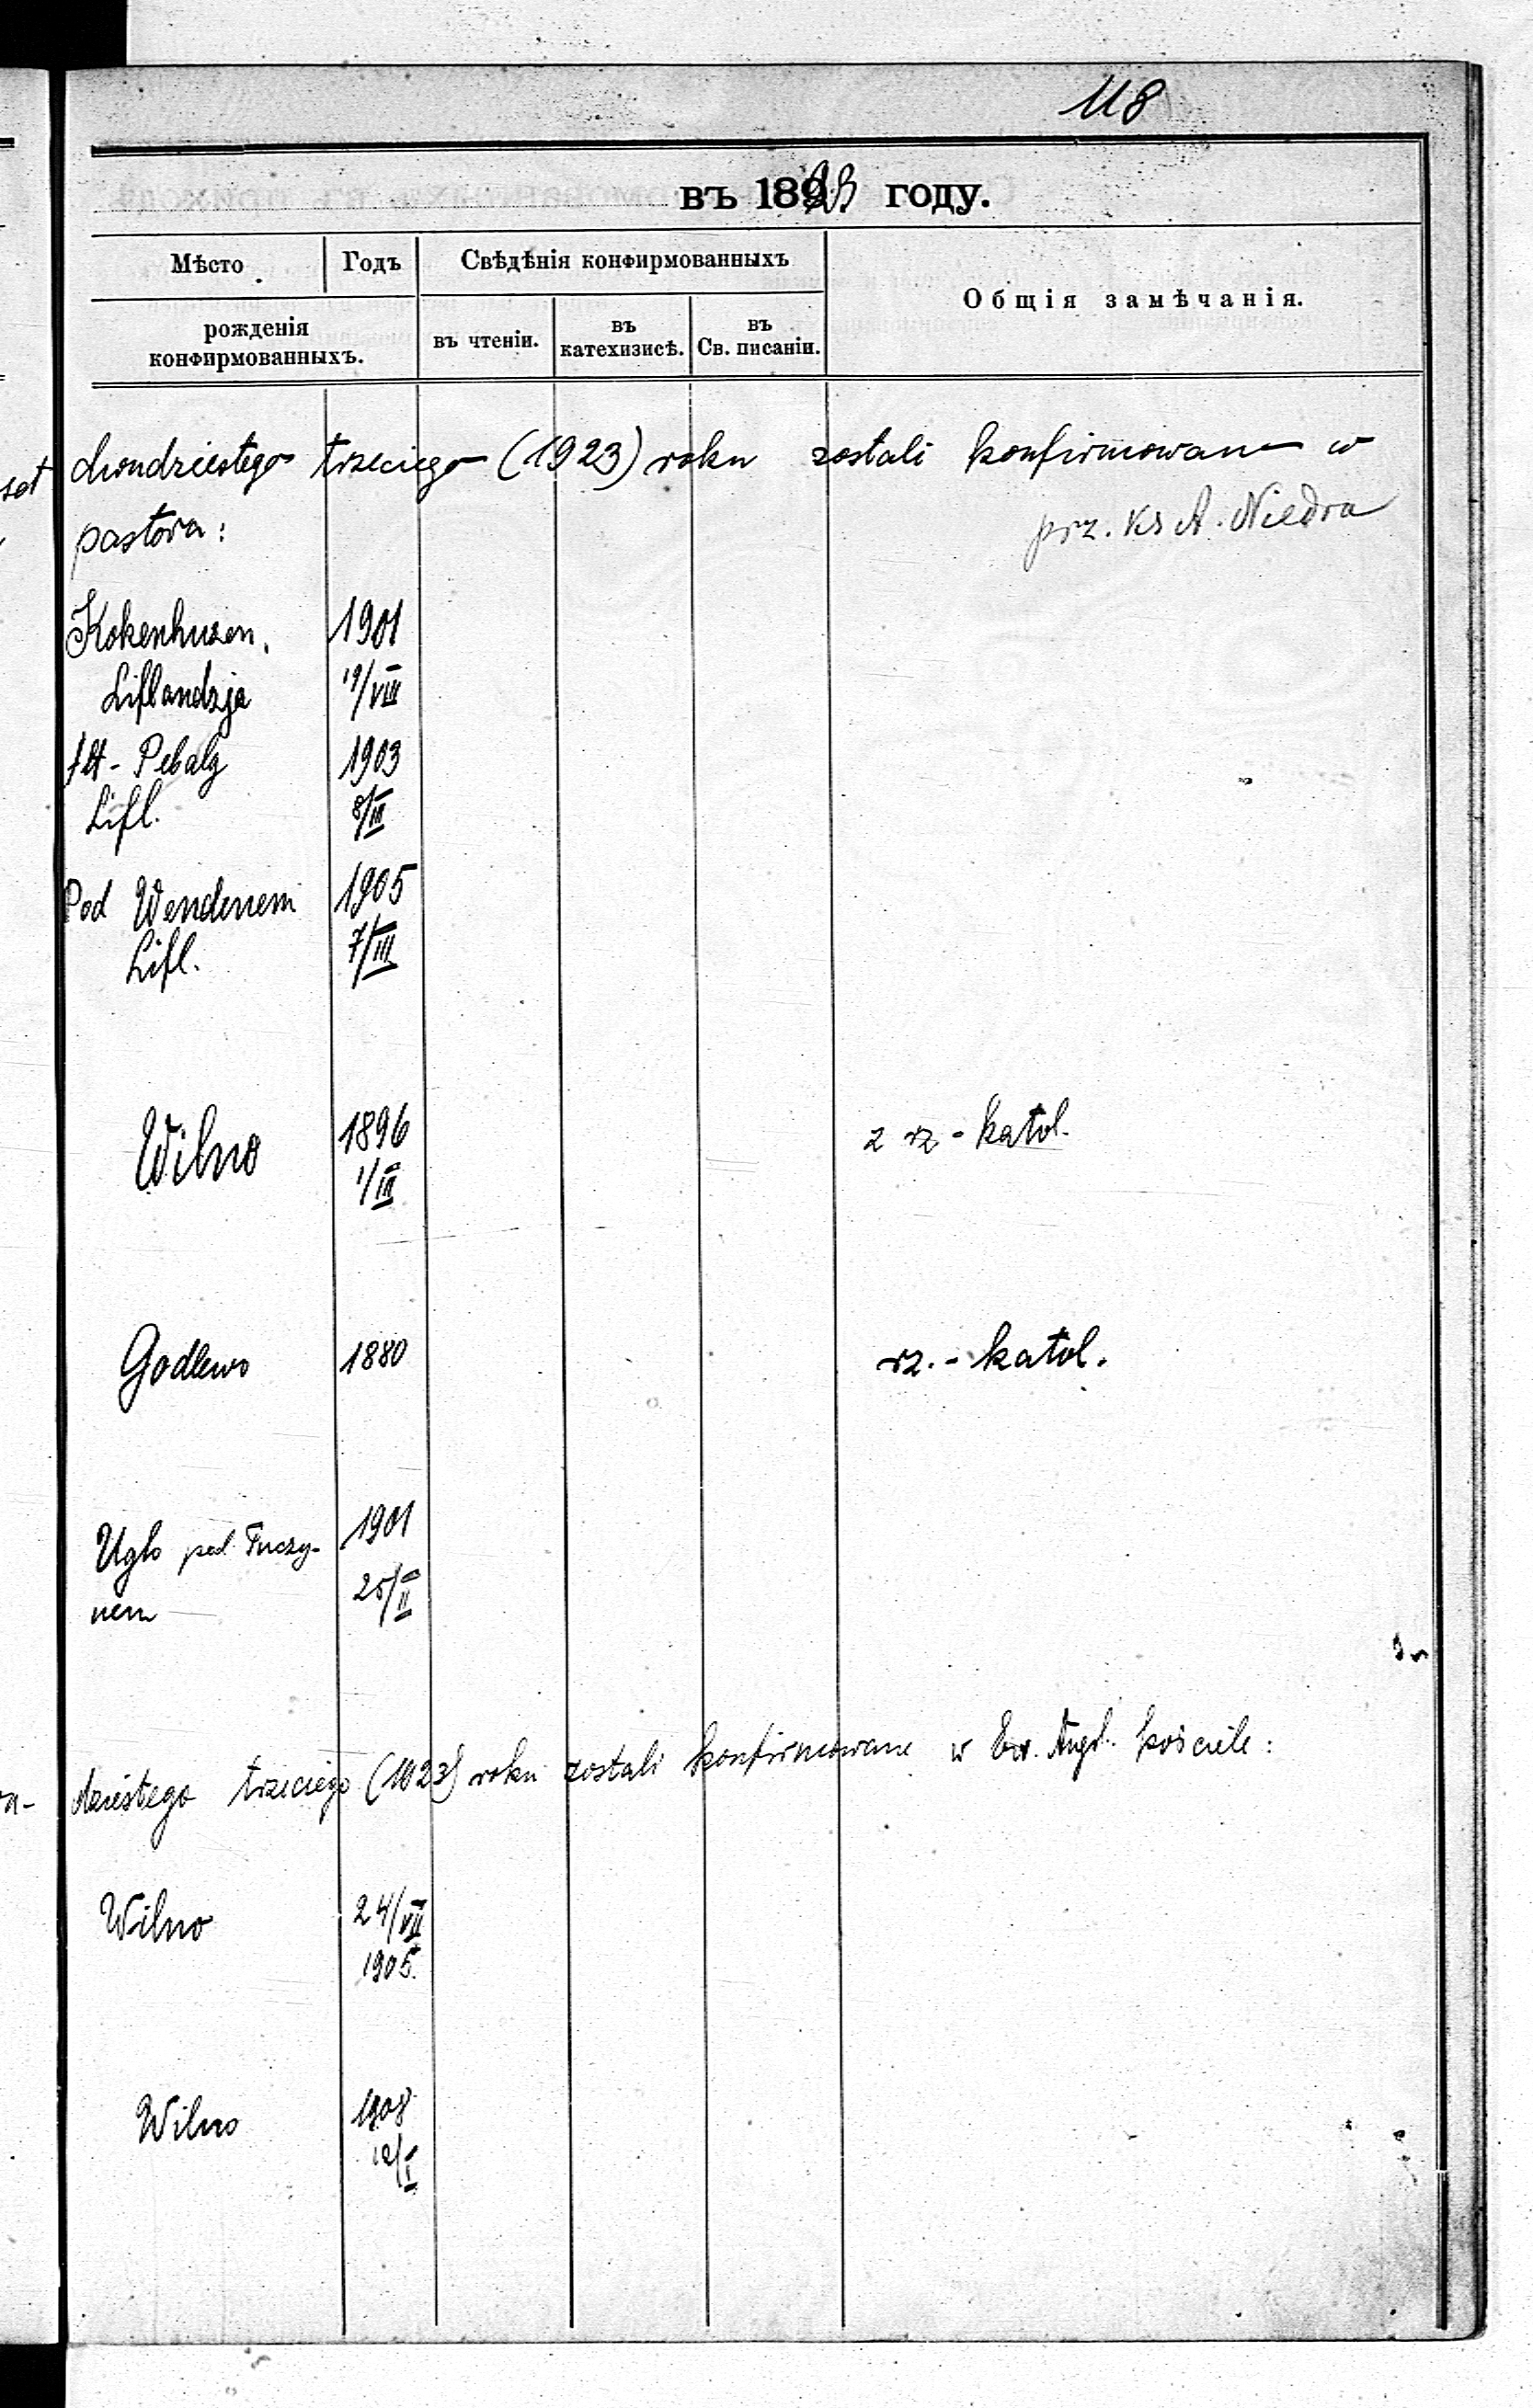 118
въ 1923 году.
Мѣсто
Годъ
Свѣдѣнія конфирмованныхъ
Общія замѣчанія.
рожденія
конфирмованныхъ.
въ чтеніи.
въ
катехизисѣ.
въ
Св. писаніи.
dwudziestego trzeciego (1923) roku zostali konfirmowane w
pastora:
prz. ks A. Niedra
Kokenhusen,
Liflandzja
1901
19/VIII
Alt-Pebalg
Lifl.
1903
8/III
Pod Wendenem
Lifl.
1905
7/III
Wilno
1896
1/III
z rz-katol.
Godlewo
1880
rz.-katol.
Uglo pod Tuczy-
nem
1901
25/II
dziestego trzeciego (1923) roku zostali konfirmowane w Ew. Augs. kościele:
Wilno
24/VII
1905.
Wilno
1908
12/I